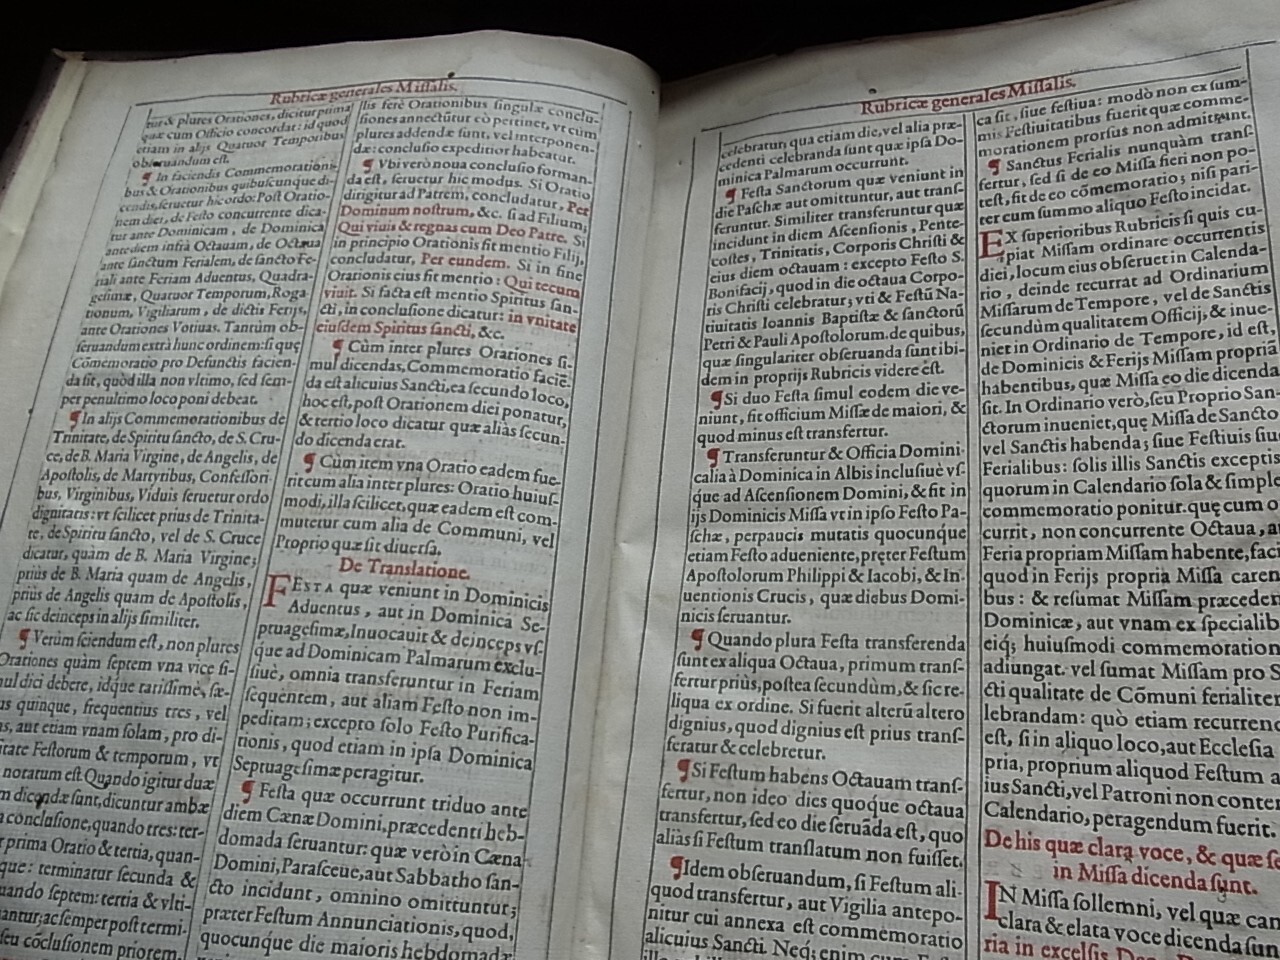 Rubricæ generales Missalis.
tur & plures Orationes, dicitur prima
quæ cum Officio concordat: id quod
etiam in alijs Quatuor Temporibus
obseruandum est.
¶ In faciendis Commemorationi-
bus & Orationibus quibuscunque di-
cendis, seruetur hic ordo: Post Oratio-
nem diei, de Festo concurrente dica-
tur ante Dominicam, de Dominica
ante diem infrà Octauam, de Octaua
ante sanctum Ferialem, de sancto Fe-
riali ante Feriam Aduentus, Quadra-
gesimæ, Quatuor Temporum, Roga-
tionum, Vigiliarum, de dictis Ferijs,
ante Orationes Votiuas. Tantùm ob-
seruandum extrà hunc ordinem: si quę
Cōmemoratio pro Defunctis facien-
da sit, quòd illa non vltimo, sed sem-
per penultimo loco poni debeat.
¶ In alijs Commemorationibus de
Trinitate, de Spiritu sancto, de S. Cru-
ce, de B. Maria Virgine, de Angelis, de
Apostolis, de Martyribus, Confessori-
bus, Virginibus, Viduis seruetur ordo
dignitatis: vt scilicet prius de Trinita-
te, de Spiritu sancto, vel de S. Cruce
dicatur, quàm de B. Maria Virgine;
priùs de B. Maria quam de Angelis,
priùs de Angelis quam de Apostolis,
ac sic deinceps in alijs similiter.
¶ Verùm sciendum est, non plures
Orationes quàm septem vna vice si-
mul dici debere, idque rarissimè, sæ-
us quinque, frequentius tres, vel
s, aut etiam vnam solam, pro di-
itate Festorum & temporum, vt
notatum est Quando igitur duæ
m dicendæ sunt, dicuntur ambæ
a conclusione, quando tres: ter-
r prima Oratio & tertia, quan-
que: terminatur secunda &
uando septem: tertia & vlti-
antur; ac semper post termi-
seu cōclusionem priorem,
llis ferè Orationibus singulæ conclu-
siones annectūtur eò pertinet, vt cùm
plures addendæ sunt, vel interponen-
dæ: conclusio expeditior habeatur.
¶ Vbi verò noua conclusio forman-
da est, seruetur hic modus. Si Oratio
dirigitur ad Patrem, concludatur, Per
Dominum nostrum, &c. si ad Filium;
Qui viuis & regnas cum Deo Patre. Si
in principio Orationis fit mentio Filij,
concludatur, Per eundem. Si in fine
Orationis eius fit mentio: Qui tecum
viuit. Si facta est mentio Spiritus san-
cti, in conclusione dicatur: in vnitate
eiusdem Spiritus sancti, &c.
¶ Cùm inter plures Orationes si-
mul dicendas, Commemoratio faciē-
da est alicuius Sancti, ea secundo loco,
hoc est, post Orationem diei ponatur,
& tertio loco dicatur quæ aliàs secun-
do dicenda erat.
¶ Cùm item vna Oratio eadem fue-
rit cum alia inter plures: Oratio huius-
modi, illa scilicet, quæ eadem est com-
mutetur cum alia de Communi, vel
Proprio quæ sit diuersa.
De Translatione.
FESTA quæ veniunt in Dominicis
Aduentus, aut in Dominica Se-
ptuagesimæ, Inuocauit & deinceps vs-
que ad Dominicam Palmarum exclu-
siuè, omnia transferuntur in Feriam
sequentem, aut aliam Festo non im-
peditam; excepto solo Festo Purifica-
tionis, quod etiam in ipsa Dominica
Septuagesimæ peragitur.
¶ Festa quæ occurrunt triduo ante
diem Cænæ Domini, præcedenti heb-
domada seruantur: quæ verò in Cæna
Domini, Parasceue, aut Sabbatho san-
cto incidunt, omnino omittuntur;
præter Festum Annunciationis, quod,
quocunque die maioris hebdomadæ
Rubricæ generales Missalis.
celebratur, qua etiam die, vel alia præ-
cedenti celebranda sunt quæ ipsa Do-
minica Palmarum occurrunt.
¶ Festa Sanctorum quæ veniunt in
die Paschæ aut omittuntur, aut trans-
feruntur. Similiter transferuntur quæ
incidunt in diem Ascensionis, Pente-
costes, Trinitatis, Corporis Christi &
eius diem octauam: excepto Festo S.
Bonifacij, quod in die octaua Corpo-
ris Christi celebratur; vti & Festū Na-
tiuitatis Ioannis Baptistæ & sanctorū
Petri & Pauli Apostolorum. de quibus,
quæ singulariter obseruanda sunt ibi-
dem in proprijs Rubricis videre est.
¶ Si duo Festa simul eodem die ve-
niunt, fit officium Missæ de maiori, &
quod minus est transfertur.
¶ Transferuntur & Officia Domini-
calia à Dominica in Albis inclusiuè vs-
que ad Ascensionem Domini, & fit in
ijs Dominicis Missa vt in ipso Festo Pa-
schæ, perpaucis mutatis quocunque
etiam Festo adueniente, pręter Festum
Apostolorum Philippi & Iacobi, & In-
uentionis Crucis, quæ diebus Domi-
nicis seruantur.
¶ Quando plura Festa transferenda
sunt ex aliqua Octaua, primum trans-
fertur priùs, postea secundùm, & sic re-
liqua ex ordine. Si fuerit alterū altero
dignius, quod dignius est prius trans-
feratur & celebretur.
¶ Si Festum habens Octauam trans-
fertur, non ideo dies quoque octaua
transfertur, sed eo die seruāda est, quo
aliàs si Festum translatum non fuisset.
¶ Idem obseruandum, si Festum ali-
quod transfertur, aut Vigilia antepo-
nitur cui annexa est commemoratio
alicuius Sancti. Neq; enim cum Fe
ca sit, siue festiua: modò non ex sum-
mis Festiuitatibus fuerit quæ comme-
morationem prorsus non admittunt.
¶ Sanctus Ferialis nunquàm trans-
fertur, sed si de eo Missa fieri non po-
test, fit de eo cōmemoratio; nisi pari-
ter cum summo aliquo Festo incidat.
EX superioribus Rubricis si quis cu-
piat Missam ordinare occurrentis
diei, locum eius obseruet in Calenda-
rio, deinde recurrat ad Ordinarium
Missarum de Tempore, vel de Sanctis
secundùm qualitatem Officij, & inue-
niet in Ordinario de Tempore, id est,
de Dominicis & Ferijs Missam propriā
habentibus, quæ Missa eo die dicenda
sit. In Ordinario verò, seu Proprio San-
ctorum inueniet, quę Missa de Sancto
vel Sanctis habenda; siue Festiuis siue
Ferialibus: solis illis Sanctis exceptis
quorum in Calendario sola & simple
commemoratio ponitur. quę cum o
currit, non concurrente Octaua, a
Feria propriam Missam habente, faci
quod in Ferijs propria Missa caren
bus: & resumat Missam præceden
Dominicæ, aut vnam ex specialib
eiq; huiusmodi commemoration
adiungat. vel sumat Missam pro S
cti qualitate de Cōmuni ferialiter
lebrandam: quò etiam recurrend
est, si in aliquo loco, aut Ecclesia
pria, proprium aliquod Festum a
ius Sancti, vel Patroni non conten
Calendario, peragendum fuerit.
De his quæ clara voce, & quæ se
in Missa dicenda sunt.
IN Missa sollemni, vel quæ can
clara & elata voce dicenda sun
ria in excelsis Deo